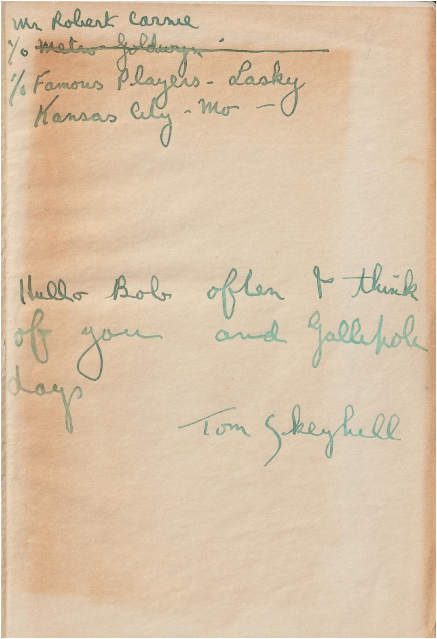 Mr Robert Carnie
c/o Metro Goldwyn
c/o Famous Players - Lasky
Kansas City - Mo -
Hullo Bob often I think
of you and Gallipole
days
Tom Skeyhill